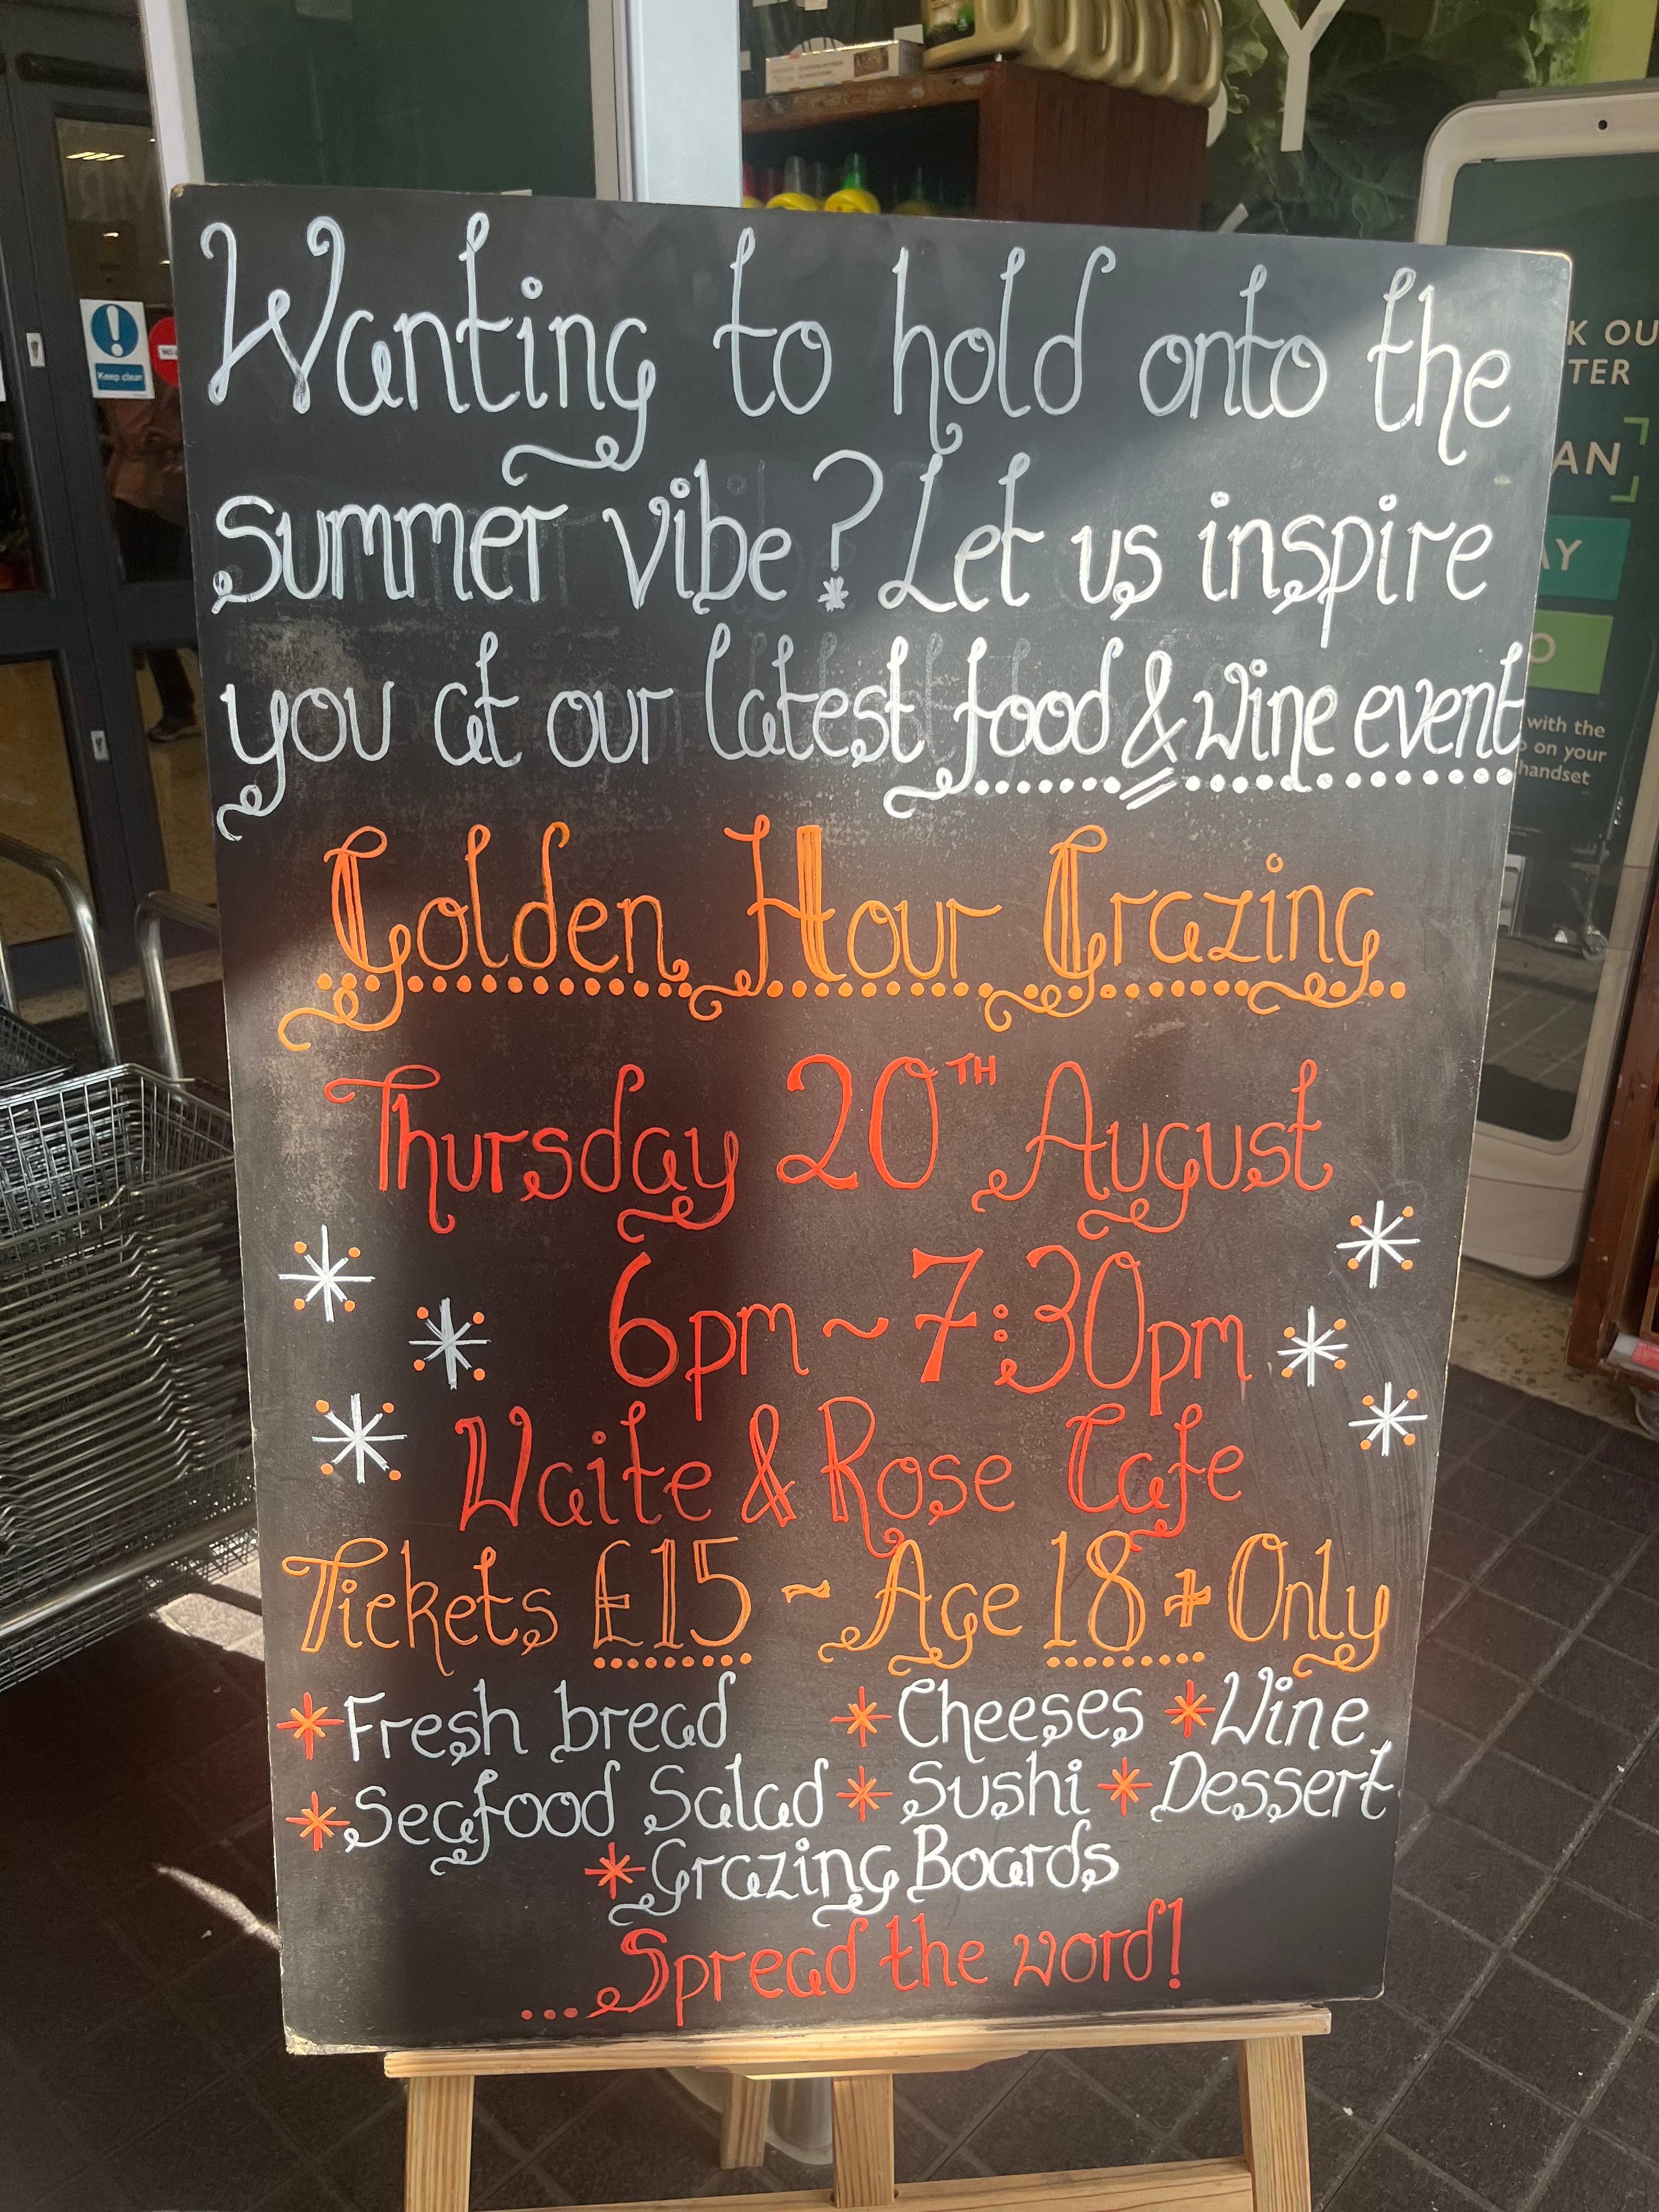 Wanting to hold onto the
summer vibe? Let us inspire
you at our latest food & wine event
Golden Hour Grazing
Thursday 20TH August
6pm ~ 7:30pm
Waite & Rose Cafe
Tickets £15 ~ Age 18+ Only
* Fresh bread * Cheeses * Wine
* Seafood Salad * Sushi * Dessert
* Grazing Boards
...Spread the word!
Keep clear
K OU
TER
AN
AY
O
with the
on your
handset
Y